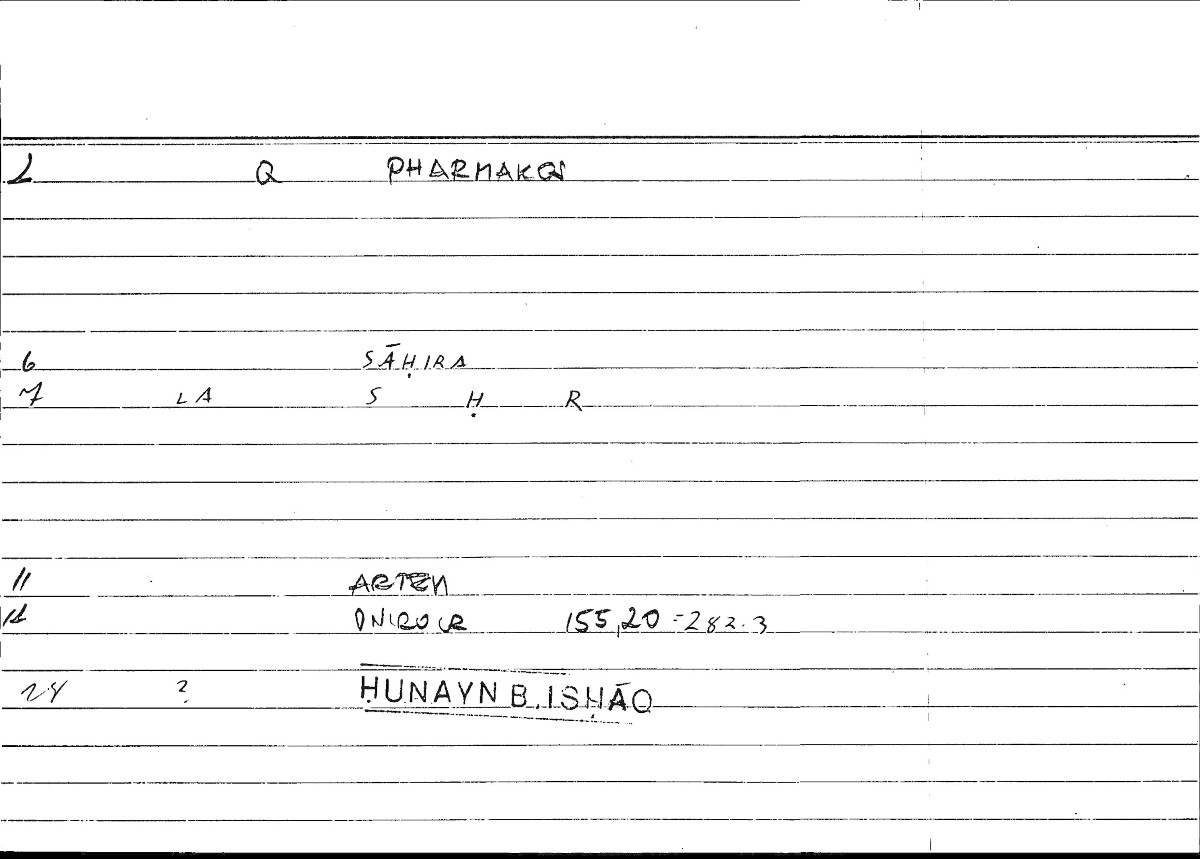 2 Q PHARMAKOS
6 SĀḤIRA
7 LA S Ḥ R
11 ARTEM
12 ONIROCR 155,20 - 282.3
24 ? ḤUNAYN B. ISḤĀQ